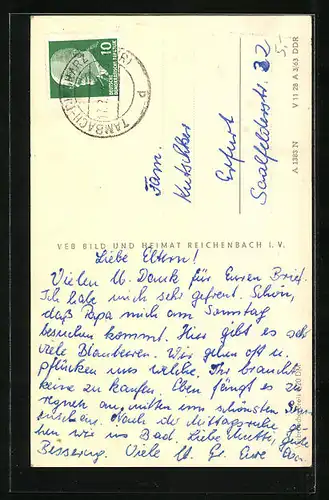 10
DEUTSCHE
DEMOKRATISCHE REPUBLIK
TAMBACH-
5,-
Fam.
Kutschker
Erfurt
Saalfelderstr. 32
V 11 28 A 3/63 DDR
A 1383 N
VEB BILD UND HEIMAT REICHENBACH I. V.
Liebe Eltern!
Vielen lb. Dank für Euren Brief.
Ich habe mich sehr gefreut. Schön,
daß Papa mich am Samstag
besuchen kommt. Hier gibt es sehr
viele Blaubeeren. Wir gehen oft u.
pflücken uns welche. Ihr braucht
keine zu kaufen. Eben fängt es zu
regnen an, mitten im schönsten
Nach der Mittagsruhe ge-
hen wir ins Bad. Liebe Mutti, gute
Besserung. Viele Gr. Eure